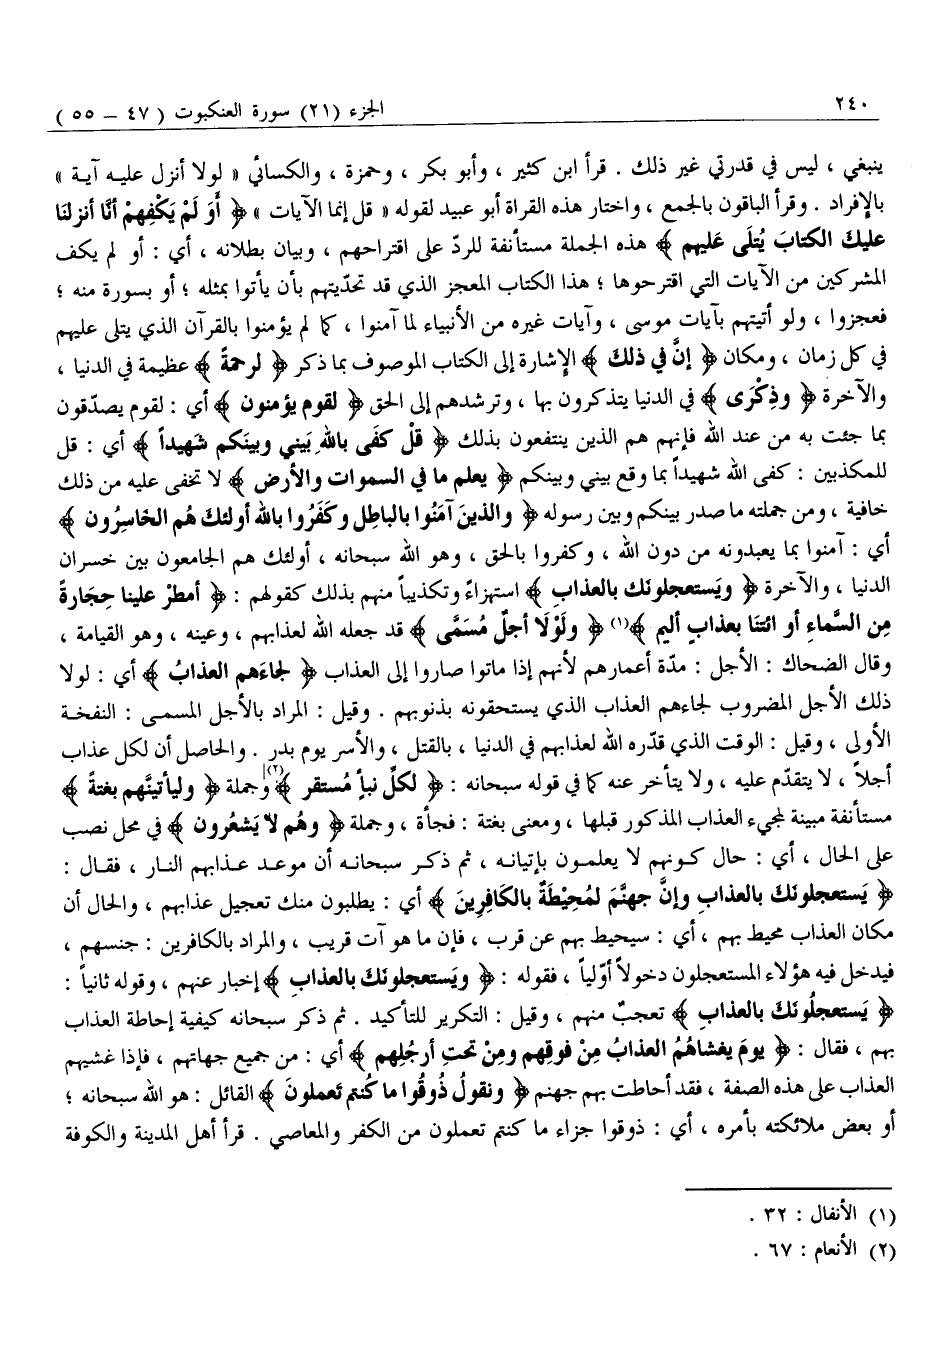 ٢٤٠
الجزء (٢١) سورة العنكبوت ( ٤٧ – ٥٥ )
ينبغي ، ليس في قدرتي غير ذلك . قرأ ابن كثير ، وأبو بكر ، وحمزة ، والكسائي « لولا أنزل عليه آية »
بالإفراد . وقرأ الباقون بالجمع ، واختار هذه القراة أبو عبيد لقوله « قل إنما الآيات » ﴿ أَوَ لَمْ يَكْفِهِمْ أنَّا أنزلنَا
عليكَ الكتابَ يُتلَى عَليهِم ﴾ هذه الجملة مستأنفة للردّ على اقتراحهم ، وبيان بطلانه ، أي : أو لم يكف
المشركين من الآيات التي اقترحوها ؛ هذا الكتاب المعجز الذي قد تحدّيتهم بأن يأتوا بمثله ؛ أو بسورة منه ؛
فعجزوا ، ولو أتيتهم بآيات موسى ، وآيات غيره من الأنبياء لما آمنوا ، كما لم يؤمنوا بالقرآن الذي يتلى عليهم
في كل زمان ، ومكان ﴿ إنَّ في ذلكَ ﴾ الإشارة إلى الكتاب الموصوف بما ذكر ﴿ لرحمةً ﴾ عظيمة في الدنيا ،
والآخرة ﴿ وذِكْرَى ﴾ في الدنيا يتذكرون بها ، وترشدهم إلى الحق ﴿ لقوم يؤمنون ﴾ أي : لقوم يصدّقون
بما جئت به من عند الله فإنهم هم الذين ينتفعون بذلك ﴿ قلْ كفَى باللهِ بَيني وبينَكم شَهيداً ﴾ أي : قل
للمكذبين : كفى الله شهيداً بما وقع بيني وبينكم ﴿ يعلم ما في السموات والأرض ﴾ لا تخفى عليه من ذلك
خافية ، ومن جملته ما صدر بينكم وبين رسوله ﴿ والذينَ آمَنُوا بالباطِلِ وكَفَرُوا بالله أولئكَ هُم الخاسِرُون ﴾
أي : آمنوا بما يعبدونه من دون الله ، وكفروا بالحق ، وهو الله سبحانه ، أولئك هم الجامعون بين خسران
الدنيا ، والآخرة ﴿ ويَستعجلونَك بالعذاب ﴾ استهزاءً وتكذيباً منهم بذلك كقولهم : ﴿ أمطرْ علينا حِجَارةً
مِن السَّماءِ أو ائتنَا بعذابٍ أليم ﴾(١) ﴿ ولَوْلَا أجلٌ مُسَمَّى ﴾ قد جعله الله لعذابهم ، وعينه ، وهو القيامة ،
وقال الضحاك : الأجل : مدّة أعمارهم لأنهم إذا ماتوا صاروا إلى العذاب ﴿ لجاءَهم العذابُ ﴾ أي : لولا
ذلك الأجل المضروب لجاءهم العذاب الذي يستحقونه بذنوبهم . وقيل : المراد بالأجل المسمى : النفخة
الأولى ، وقيل : الوقت الذي قدّره الله لعذابهم في الدنيا ، بالقتل ، والأسر يوم بدر . والحاصل أن لكل عذاب
أجلاً ، لا يتقدّم عليه ، ولا يتأخر عنه كما في قوله سبحانه : ﴿ لكلِّ نبأٍ مُستقر ﴾(٢) وجملة ﴿ وليأتينَّهم بغتةً ﴾
مستأنفة مبينة لمجيء العذاب المذكور قبلها ، ومعنى بغتة : فجأة ، وجملة ﴿ وهُم لا يَشعُرون ﴾ في محل نصب
على الحال ، أي : حال كونهم لا يعلمون بإتيانه ، ثم ذكر سبحانه أن موعد عذابهم النار ، فقال :
﴿ يَستعجلونَكَ بالعذابِ وإنَّ جهنَّمَ لمُحِيْطَةٌ بالكَافِرِينَ ﴾ أي : يطلبون منك تعجيل عذابهم ، والحال أن
مكان العذاب محيط بهم ، أي : سيحيط بهم عن قرب ، فإن ما هو آت قريب ، والمراد بالكافرين : جنسهم ،
فيدخل فيه هؤلاء المستعجلون دخولاً أوّلياً ، فقوله : ﴿ ويَستعجلونَكَ بالعذابِ ﴾ إخبار عنهم ، وقوله ثانياً :
﴿ يَستعجلُونَكَ بالعذابِ ﴾ تعجبٌ منهم ، وقيل : التكرير للتأكيد . ثم ذكر سبحانه كيفية إحاطة العذاب
بهم ، فقال : ﴿ يومَ يغشاهُمُ العذابُ مِنْ فوقِهم ومِنْ تحتِ أرجُلِهم ﴾ أي : من جميع جهاتهم ، فإذا غشيهم
العذاب على هذه الصفة ، فقد أحاطت بهم جهنم ﴿ ونقولُ ذُوقُوا ما كُنتم تَعملُونَ ﴾ القائل : هو الله سبحانه ؛
أو بعض ملائكته بأمره ، أي : ذوقوا جزاء ما كنتم تعملون من الكفر والمعاصي . قرأ أهل المدينة والكوفة
(١) الأنفال : ٣٢ .
(٢) الأنعام : ٦٧ .